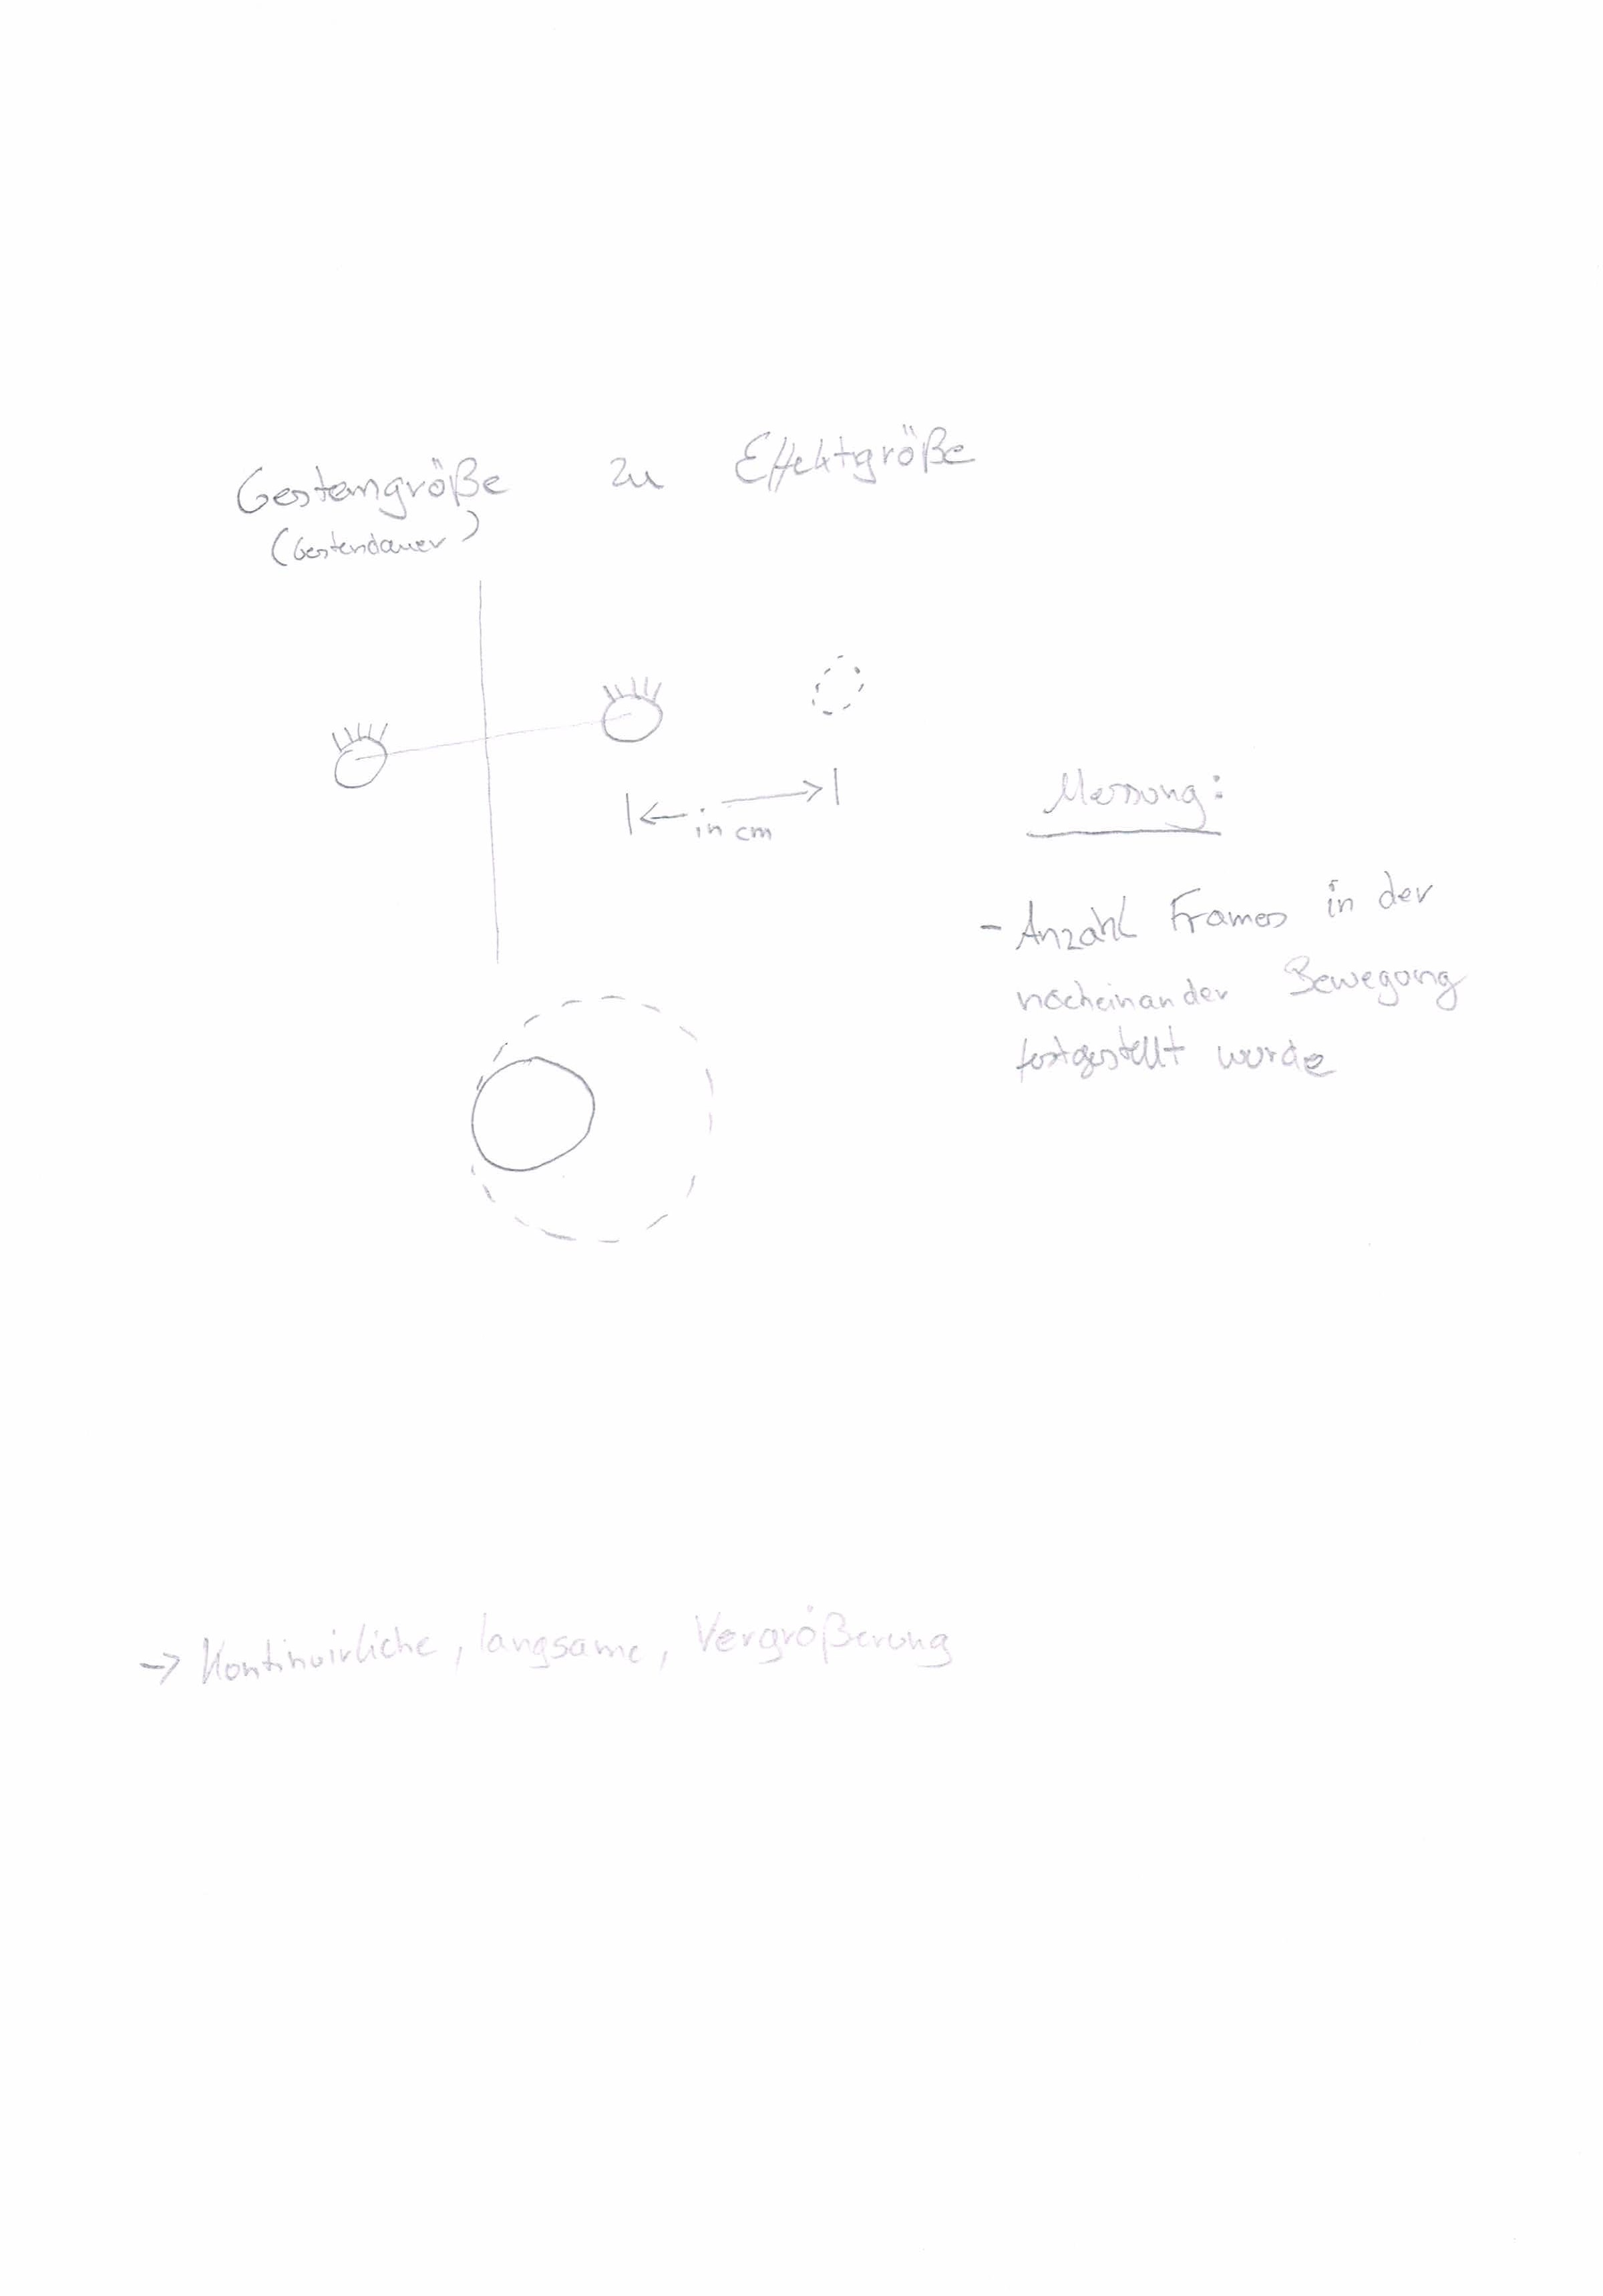 Gestengröße zu Effektgröße
(Gestendauer)
in cm
Messung:
- Anzahl Frames in der
nacheinander Bewegung
festgestellt wurde
-> Kontinuirliche, langsame, Vergrößerung